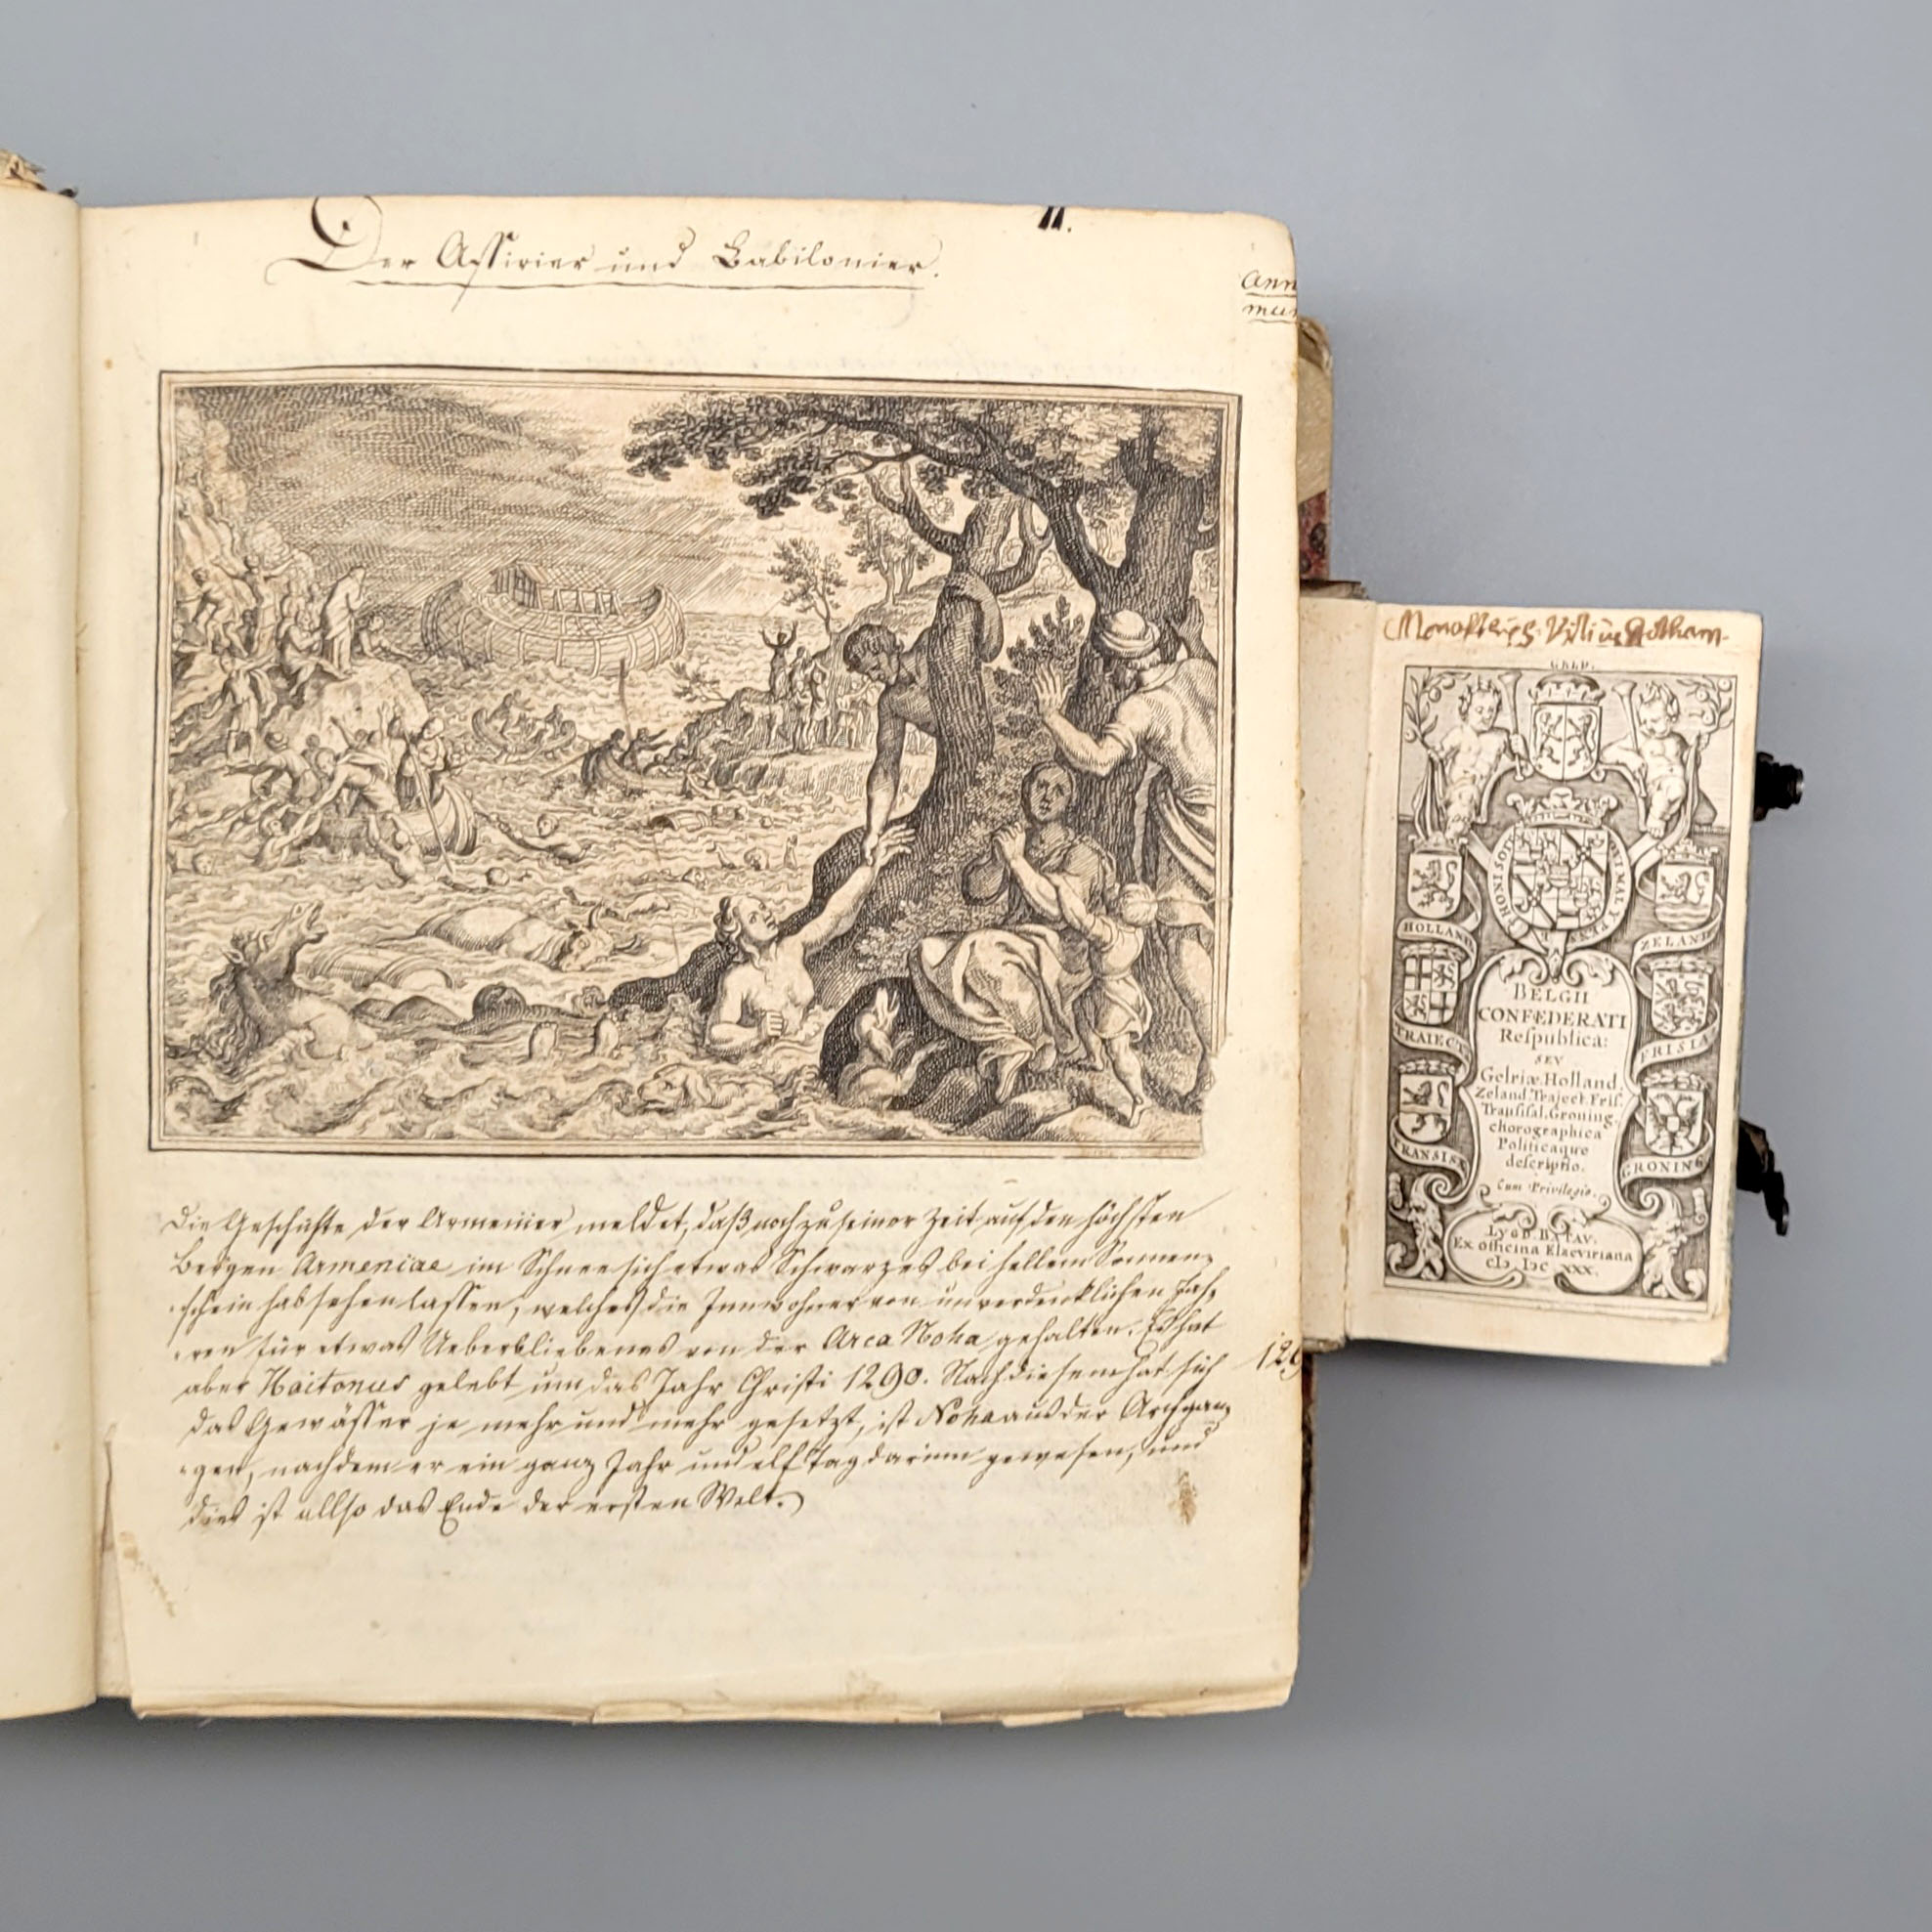 Der Assirier und Babilonier.
11.
Die Geschichte der Armenier meldet, daß noch zu seiner Zeit auf den höchsten
Bergen Armeniae im Schnee sich etwas Schwarzes bei hellem Sonnen-
schein hab sehen lassen, welches die Innwohner von unverdenklichen Jah-
ren für etwas Ueberbliebenes von der Arca Noha gehalten. Es hat
aber Haitonus gelebt um das Jahr Christi 1290. Nach diesem hat sich
das Gewässer je mehr und mehr gesetzt, ist Noha aus der Arch gan-
gen, nachdem er ein ganz Jahr und elf Tag darinn gewesen, und
dies ist allso das Ende der ersten Welt.
GELD.
HONI SOIT QUI MAL Y PENSE
HOLLAND
ZELAND
TRAIECT
FRISIA
TRANSISL
GRONING
BELGII
CONFŒDERATI
Respublica:
SEV
Gelriæ. Holland.
Zeland. Traject. Fris.
Transisal. Groning.
chorographica
Politicaque
descriptio.
Cum Privilegio.
LVGD. BATAV.
Ex officina Elzeviriana
cIↃ. IↃc XXX.